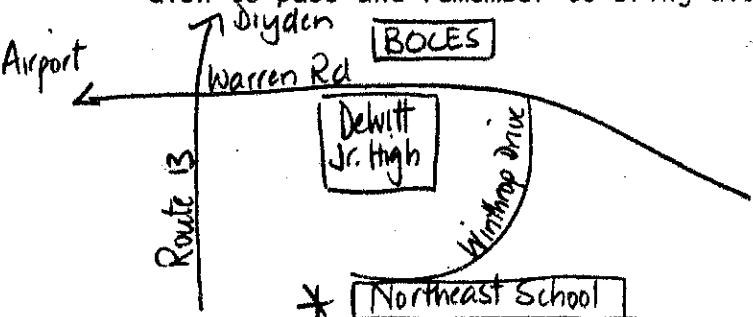 Dryden
BOCES
Airport
Warren Rd
DeWitt
Jr. High
Winthrop Drive
Route 13
* Northeast School